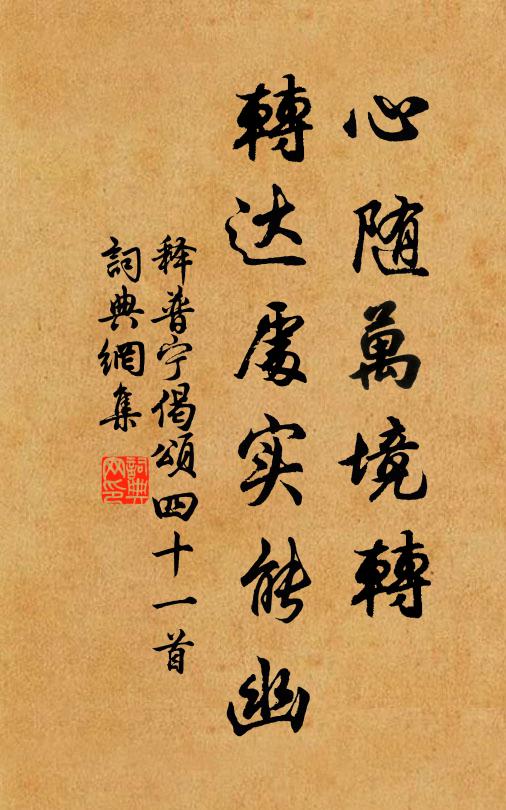 心随萬境轉
轉达處实能幽
释普宁偈頌四十一首
詞典網集
詞典
网印